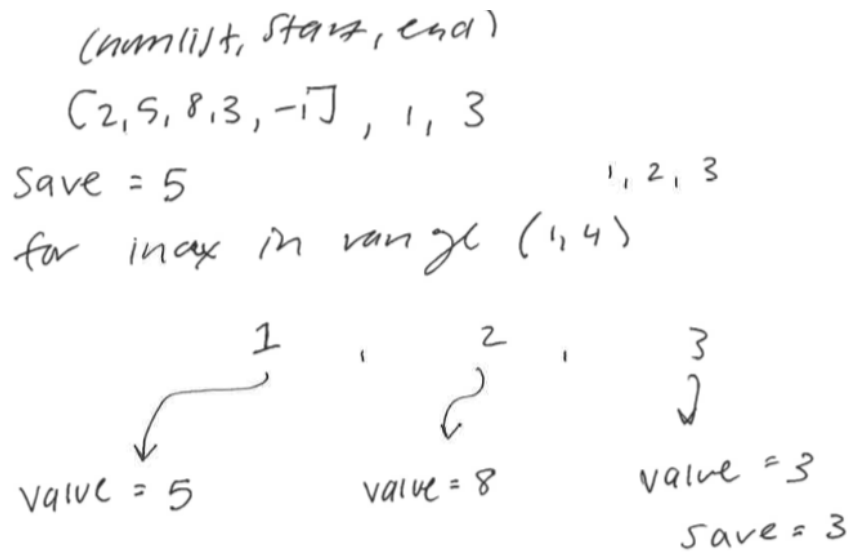 (numlist, start, end)
[2, 5, 8, 3, -1], 1, 3
Save = 5
1, 2, 3
for index in range (1, 4)
1 , 2 , 3
value = 5
value = 8
value = 3
save = 3